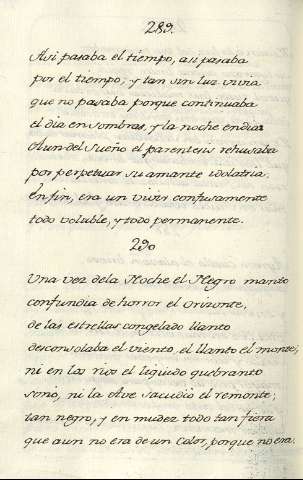 289.
Asi pasaba el tiempo, asi pasaba
por el tiempo; y tan sin luz vivia
que no pasaba porque continuaba
el dia en sombras, y la noche en dia:
Aun del Sueño el parentesis rehusaba
por perpetuar su amante idolatria.
En fin, era un vivir confusamente
todo voluble, y todo permanente.
290
Una vez dela Noche el Negro manto
confundia de horror el Orizonte,
de las estrellas congelado llanto
desconsolaba el viento, el llanto el monte;
ni en las rios el liquido quebranto
sonò, ni la Ave sacudiò el remonte;
tan negro, y en mudez todo tan fiera
que aun no era de un Color, porque no era.